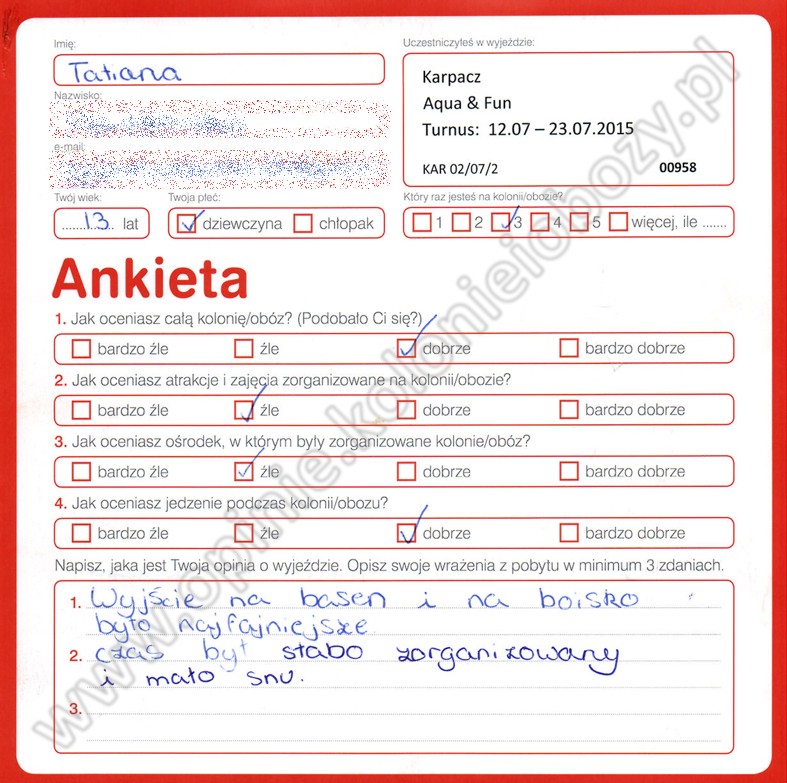 Imię:
Tatiana
Nazwisko:
e-mail:
Twój wiek:
13 lat
Twoja płeć:
dziewczyna chłopak
Uczestniczyłeś w wyjeździe:
Karpacz
Aqua & Fun
Turnus: 12.07 – 23.07.2015
KAR 02/07/2 00958
Który raz jesteś na kolonii/obozie?
1 2 3 4 5 więcej, ile .......
Ankieta
1. Jak oceniasz całą kolonię/obóz? (Podobało Ci się?)
bardzo źle źle dobrze bardzo dobrze
2. Jak oceniasz atrakcje i zajęcia zorganizowane na kolonii/obozie?
bardzo źle źle dobrze bardzo dobrze
3. Jak oceniasz ośrodek, w którym były zorganizowane kolonie/obóz?
bardzo źle źle dobrze bardzo dobrze
4. Jak oceniasz jedzenie podczas kolonii/obozu?
bardzo źle źle dobrze bardzo dobrze
Napisz, jaka jest Twoja opinia o wyjeździe. Opisz swoje wrażenia z pobytu w minimum 3 zdaniach.
1. Wyjście na basen i na boisko
było najfajniejsze
2. czas był słabo zorganizowany
i mało snu.
3.
www.opinie.kolonieiobozy.pl